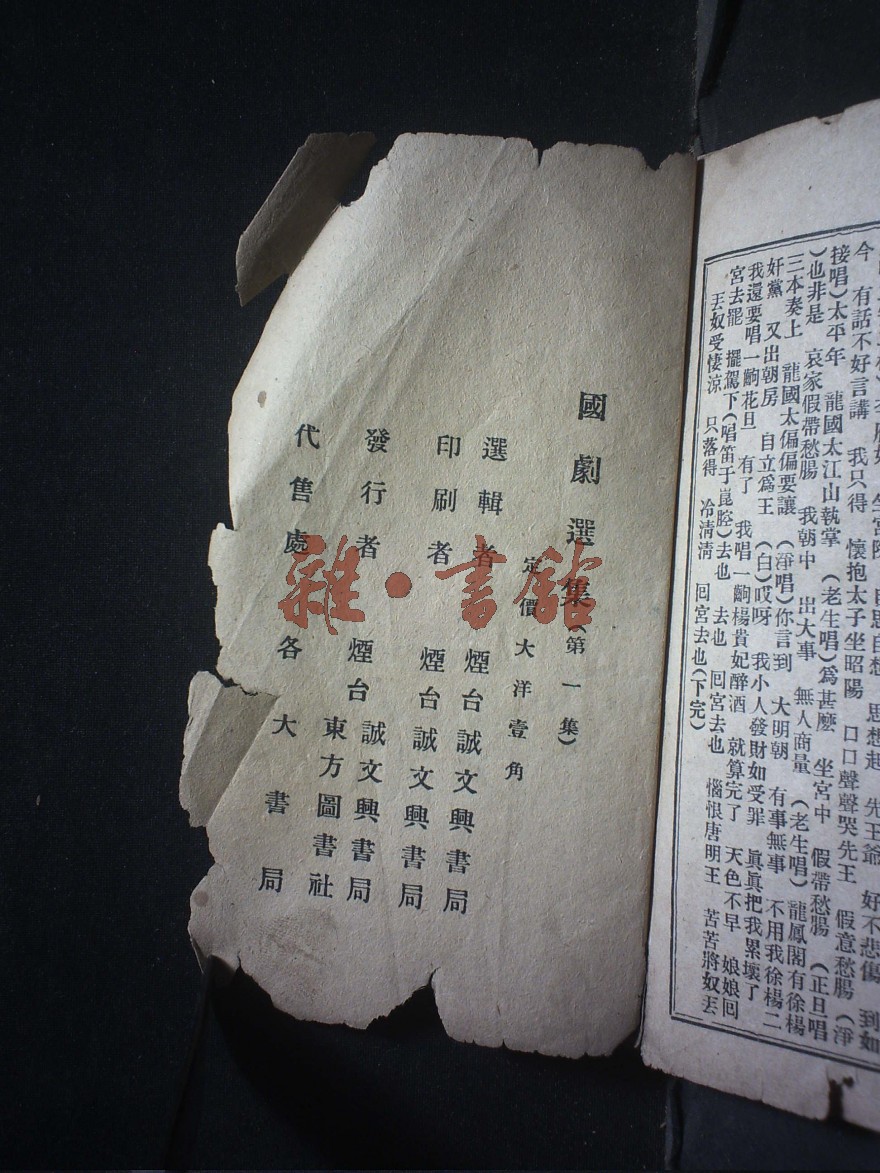 今
有話不好言講 我只得 懷抱太子坐昭陽 口口聲聲哭先王 假意愁腸（淨
接唱）太平年 龍國太江山執掌 （老生唱）爲甚麽 坐宮中 假帶愁腸 （正旦唱
）也非是 哀家假帶愁腸 我朝中 出大事 無人商量 （老生唱）龍鳳閣有徐楊
三本奏上 龍國太偏偏要讓 （淨唱）你言到 大明朝 有事無事 不用我徐楊二
奸黨 又出朝房 自立爲王（白）哎呀 我小人發財如受罪 眞眞把我累壞了
我還要唱一齣花旦 有了 我唱一齣楊貴妃醉酒 就算完了 天色不早 娘娘回
宮去罷 擺駕下（唱笛于崑腔）去也 去也 回宮去也 惱恨唐明王 苦苦將奴丟
丟奴受悽涼 只落得 冷清清 回宮去也（下完）
國劇選集（第一集）
定價大洋壹角
選輯者 煙台誠文興書局
印刷者 煙台誠文興書局
發行者 煙台 誠文興書局
東方圖書社
代售處 各大書局
雜·書館